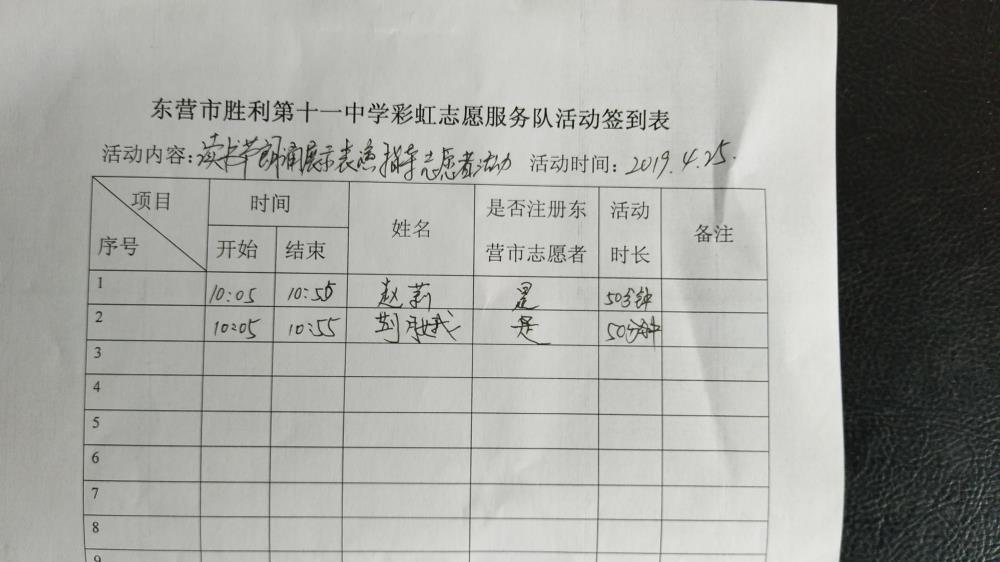 东营市胜利第十一中学彩虹志愿服务队活动签到表
活动内容：读书节朗诵展示表演指导志愿者活动 活动时间：2019.4.25.
项目 时间 姓名 是否注册东营市志愿者 活动时长 备注
序号 开始 结束
1 10:05 10:55 赵莉 是 50分钟
2 10:05 10:55 荆 是 50分钟
3
4
5
6
7
8
9